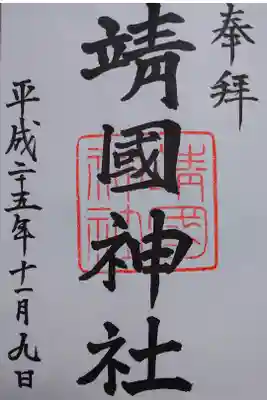 奉拝
靖國神社
靖國
神社
平成二十五年十一月九日